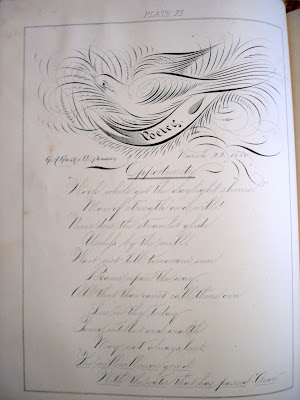 PLATE XI
Poetry.
March
Opportunity
Work while yet the daylight shines,
Man of strength and will!
Never does the streamlet glide
Useless by the mill.
Wait not till tomorrow's sun
Beams upon the way
All that thou canst call thine own
Lies in thy today
Power, intellect and health
May not always last
The mill will never grind
With the water that has passed